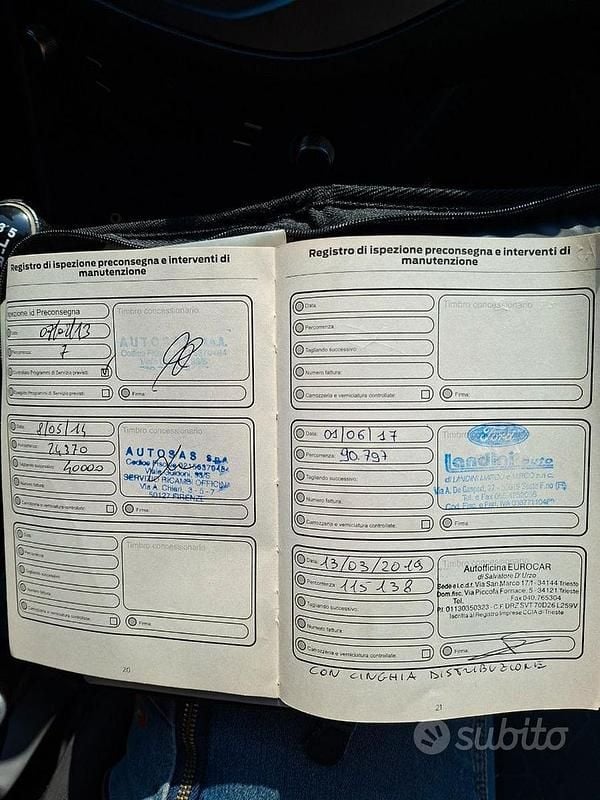 Registro di ispezione preconsegna e interventi di
manutenzione
Ispezione id Preconsegna
Data:
Percorrenza: 7
Controllato Programmi di Servizio previsti:
Eseguito Programmi di Servizio previsti:
Timbro concessionario:
AUTOSAS S.p.A.
Firma:
Data: 8/05/14
Percorrenza: 24370
Tagliando successivo: 40000
Numero fattura:
Carrozzeria e verniciatura controllate:
Timbro concessionario:
AUTOSAS SpA
Viale Guidoni, 93/C
SERVIZIO RICAMBI OFFICINA
Via A. Chiari, 3-5-7
50127 FIRENZE
Firma:
Data:
Percorrenza:
Tagliando successivo:
Numero fattura:
Carrozzeria e verniciatura controllate:
Timbro concessionario:
Firma:
20
Registro di ispezione preconsegna e interventi di
manutenzione
Data:
Percorrenza:
Tagliando successivo:
Numero fattura:
Carrozzeria e verniciatura controllate:
Timbro concessionario:
Firma:
Data: 01/06/17
Percorrenza: 90.797
Tagliando successivo:
Numero fattura:
Carrozzeria e verniciatura controllate:
Ford
Landini auto
Firma:
Data: 13/03/2019
Percorrenza: 115138
Tagliando successivo:
Numero fattura:
Carrozzeria e verniciatura controllate:
Autofficina EUROCAR
di Salvatore D'Urzo
Sede e i.c.d.f. Via San Marco 17/1 - 34144 Trieste
Dom.fisc. Via Piccola Fornace, 5 - 34121 Trieste
Tel. Fax 040.765304
P.I. 01130350323 - C.F. DRZ SVT 70D26 L259V
Iscritta al Registro Imprese CCIA di Trieste
Firma:
CON CINGHIA DISTRIBUZIONE
21
subito